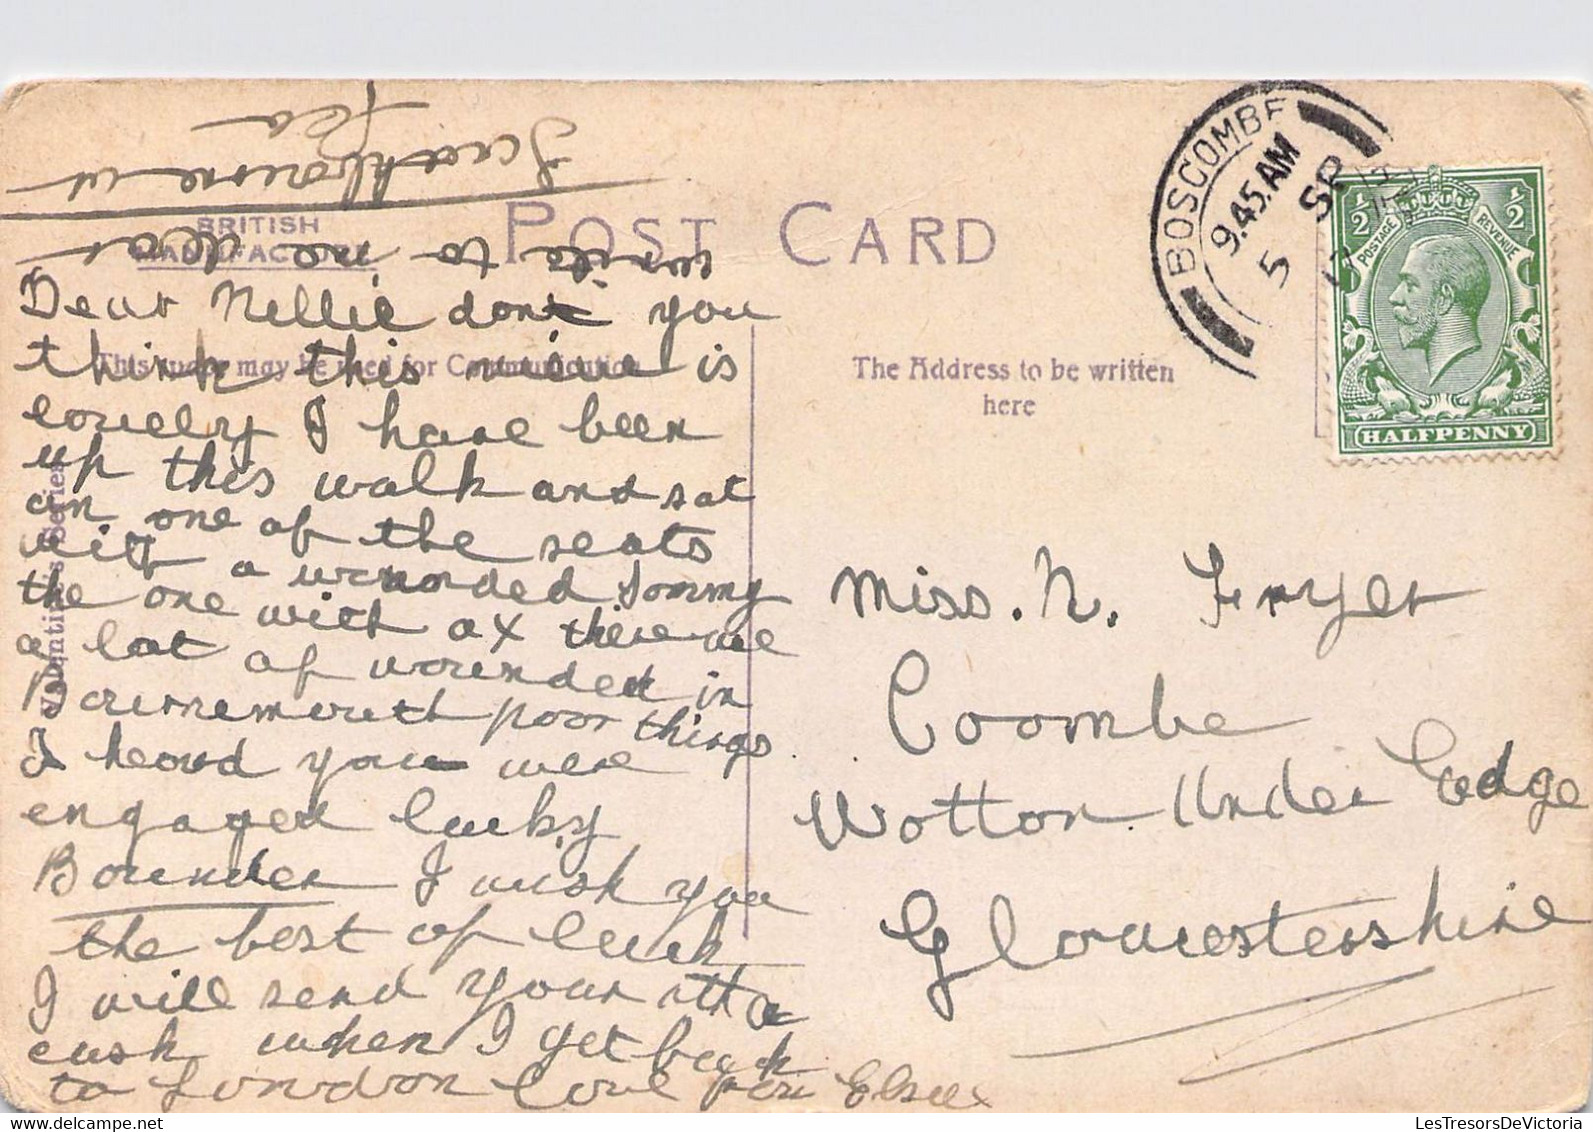 BRITISH
MANUFACTURE
POST CARD
write to me dear
Dear Nellie dont you
think this view is
lovely I have been
up this walk and sat
on one of the seats
with a wounded Tommy
the one with a x there are
a lot of wounded in
Bournemouth poor things
I heard you were
engaged lucky
Bounder I wish you
the best of luck
I will send your
cush when I get back
to London love from Elsie
This space may be used for Communication
The Address to be written
here
Valentine's Series
BOSCOMBE
9.45 AM
5 SP
1/2 1/2
POSTAGE REVENUE
HALFPENNY
Miss. N. Fryer
Coombe
Wotton Under Edge
Gloucestershire
LesTresorsDeVictoria.com